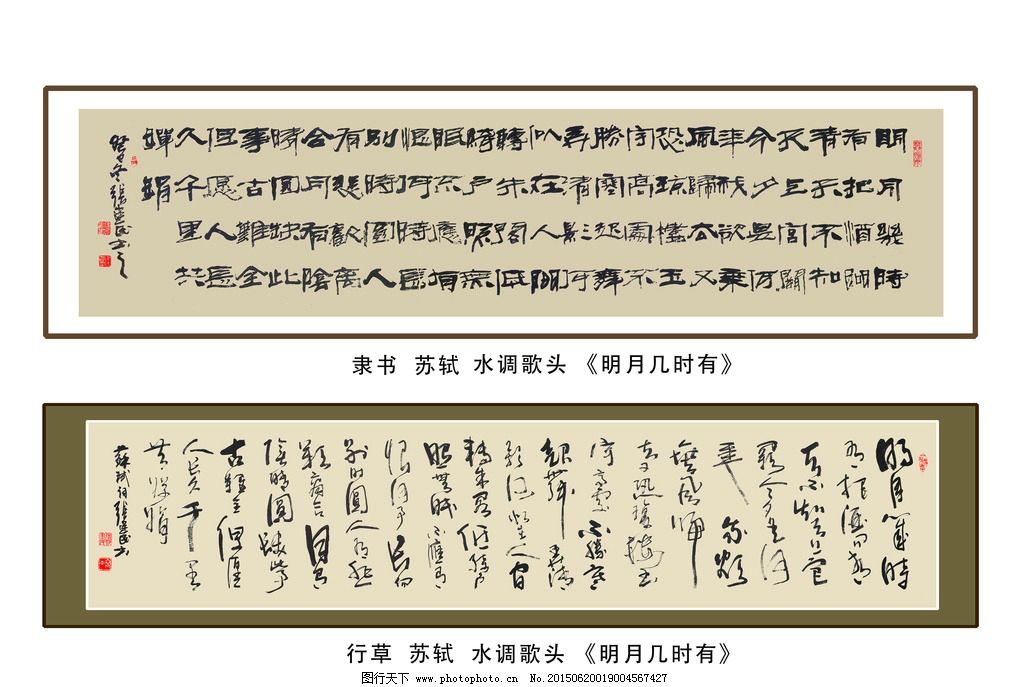 明月幾時
有把酒問
青天不知
天上宮闕
今夕是何
年我欲乘
風歸去又
恐瓊樓玉
宇高處不
勝寒起舞
弄清影何
似在人間
轉朱閣低
綺户照無
眠不應有
恨何時長
別時圓人
有悲歡離
合月有陰
晴圓缺此
事古難全
但愿人長
久千里共
嬋娟
癸巳冬張建民書之
隶书 苏轼 水调歌头《明月几时有》
明月幾時
有把酒問青
天不知天上宮
闕今夕是何
年我欲
乘風歸
去又恐瓊樓玉
宇高處不勝寒
起舞弄清
影何似在人間
轉朱閣低綺户
照無眠不應有
恨何事長向
別時圓人有悲
歡離合月有
陰晴圓缺此事
古難全但愿
人長久千里
共嬋娟
蘇軾詞張建民書
行草 苏轼 水调歌头《明月几时有》
图行天下 www.photophoto.cn No.20150620019004567427